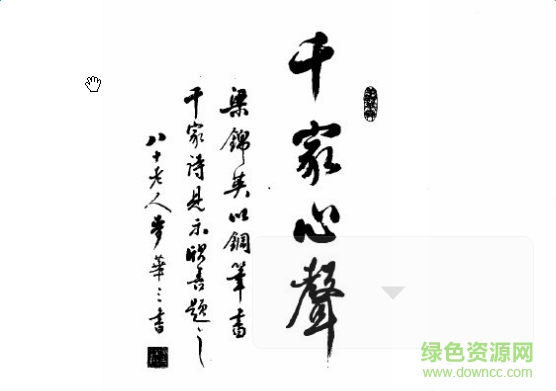 千家心聲
梁錦英以鋼筆書
千家诗見示欣喜題之
八十老人夢華三書
绿色资源网
www.downcc.com